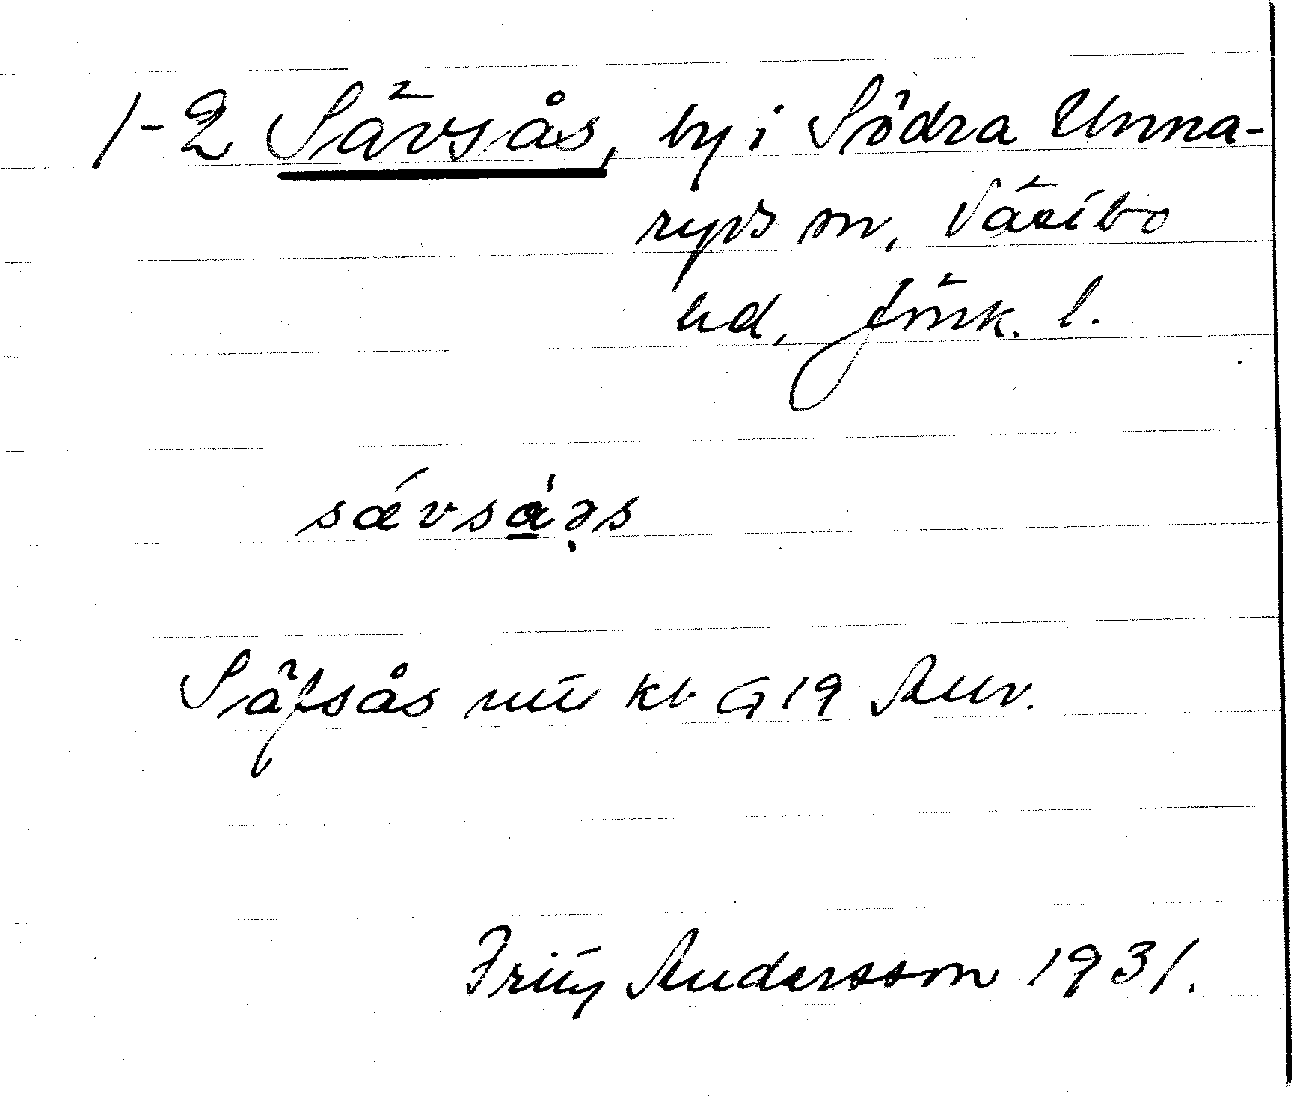 1-2 Sävsås, by i Södra Unna-
ryds sn, Västbo
hd, Jönk. l.
sǽvsa̱̍ə̣s
Säfsås nu kb G 19 Anv.
Andersson 1931.